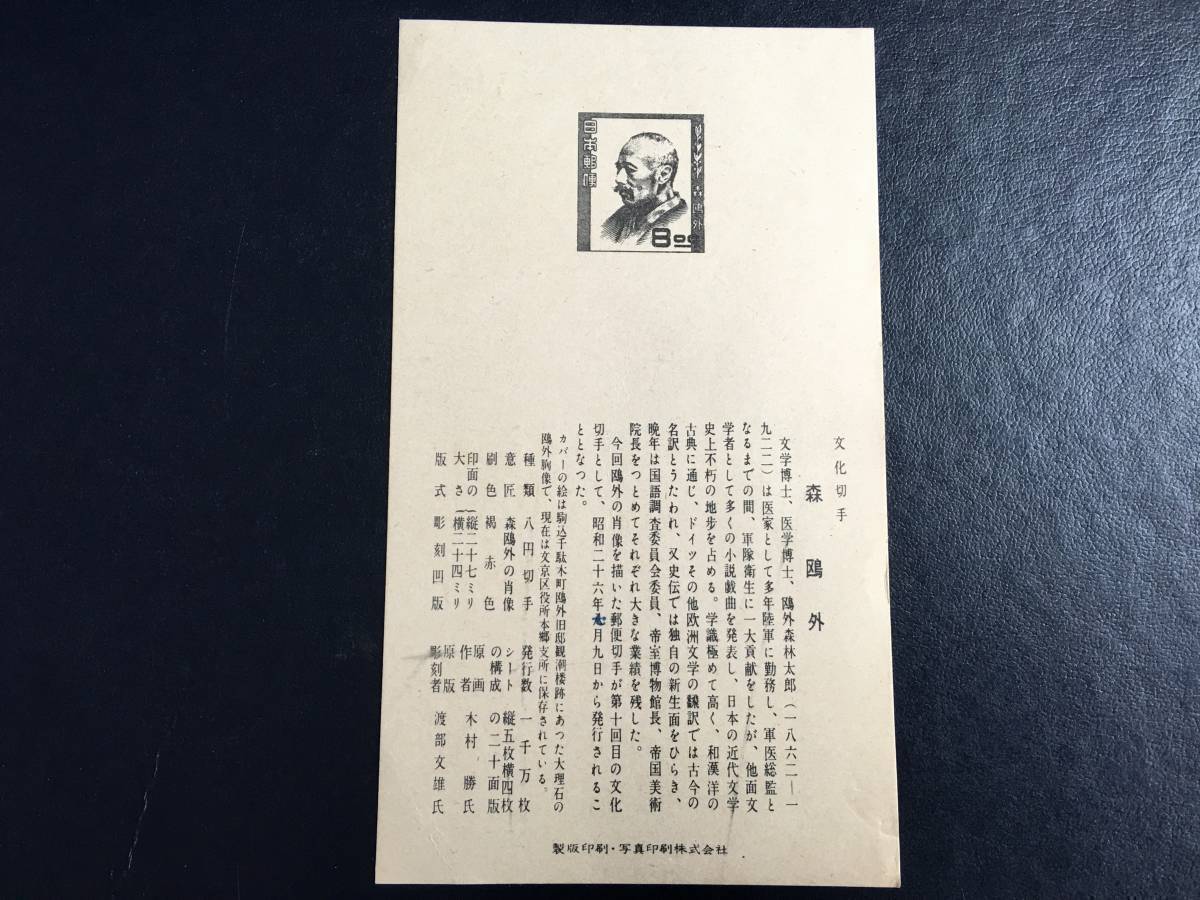 日本郵便
森鴎外
8.00
文化切手
森鴎外
文学博士、医学博士、鴎外森林太郎（一八六二―一
九二二）は医家として多年陸軍に勤務し、軍医総監と
なるまでの間、軍隊衛生に一大貢献をしたが、他面文
学者として多くの小説戯曲を発表し、日本の近代文学
史上不朽の地歩を占める。学識極めて高く、和漢洋の
古典に通じ、ドイツその他欧洲文学の飜訳では古今の
名訳とうたわれ、又史伝では独自の新生面をひらき、
晩年は国語調査委員会委員、帝室博物館長、帝国美術
院長をつとめてそれぞれ大きな業績を残した。
今回鴎外の肖像を描いた郵便切手が第十回目の文化
切手として、昭和二十六年七月九日から発行されるこ
ととなつた。
カバーの絵は駒込千駄木町鴎外旧邸観潮楼跡にあつた大理石の
鴎外胸像で、現在は文京区役所本郷支所に保存されている。
種類 八円切手
意匠 森鴎外の肖像
刷色 褐赤色
印面の大さ 縦二十七ミリ 横二十四ミリ
版式 彫刻凹版
発行数 一千万枚
シートの構成 縦五枚横四枚の二十面版
原画作者 木村勝氏
原版彫刻者 渡部文雄氏
製版印刷・写真印刷株式会社